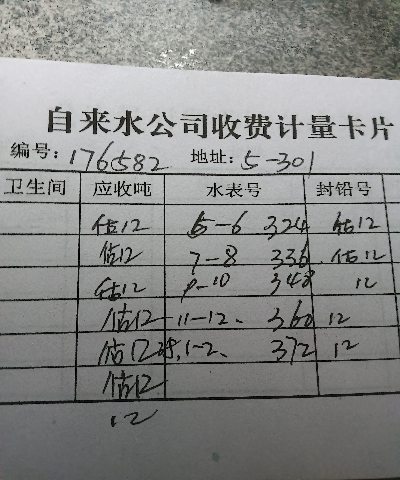 自来水公司收费计量卡片
编号: 176582 地址: 5-301
卫生间 应收吨 水表号 封铅号
估12 5-6 324 估12
估12 7-8 336 估12
估12 9-10 348 12
估12 11-12. 360 12
估12 1-2. 372 12
估12
12